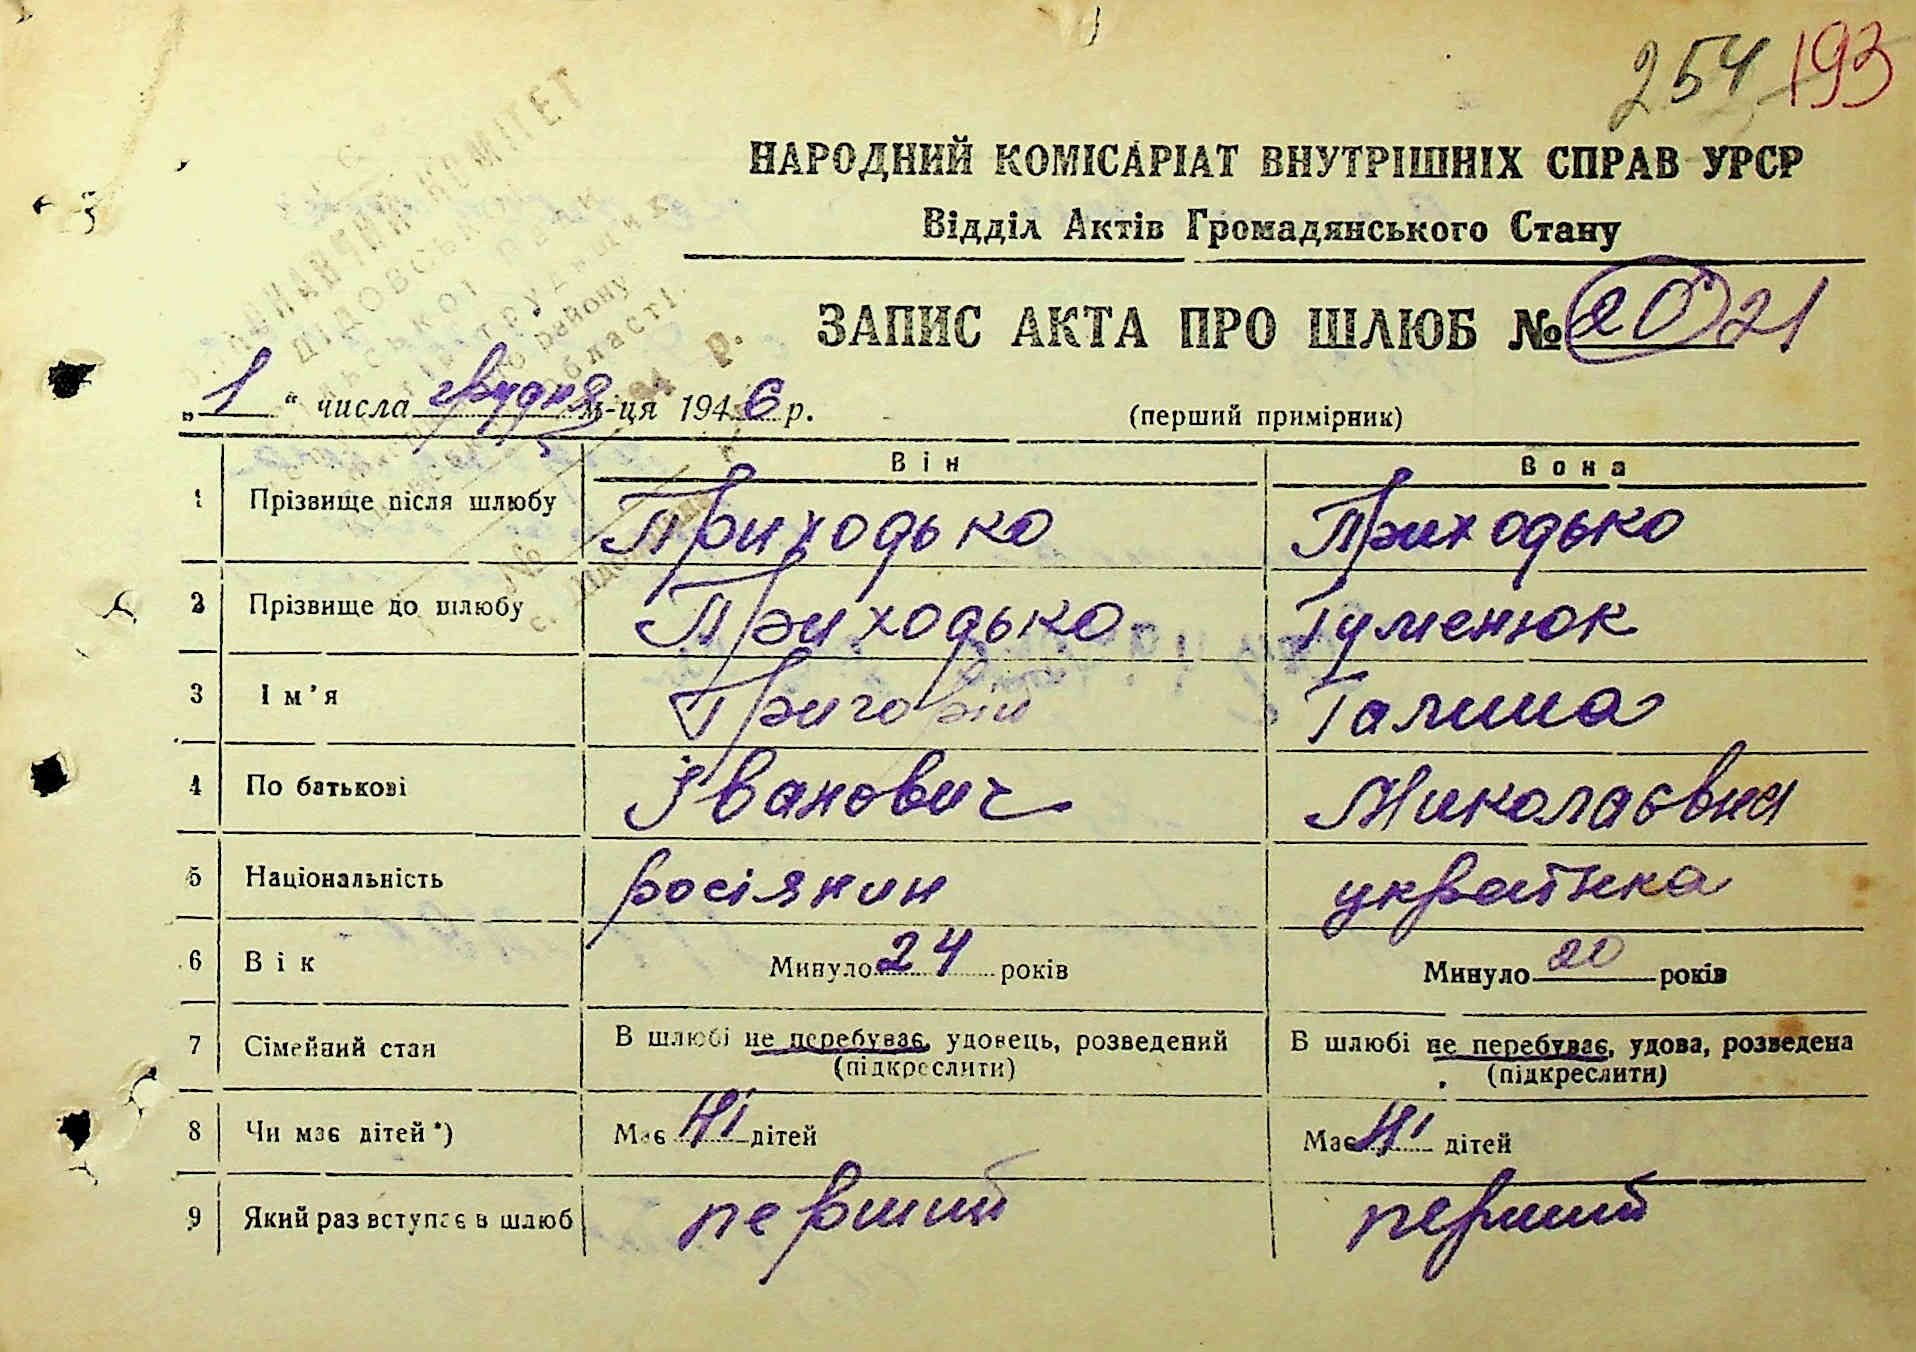 254 193
НАРОДНИЙ КОМІСАРІАТ ВНУТРІШНІХ СПРАВ УРСР
Відділ Актів Громадянського Стану
ЗАПИС АКТА ПРО ШЛЮБ № 20 21
„1“ числа грудня м-ця 1946 р. (перший примірник)
ВИКОНАВЧИЙ КОМІТЕТ
району
області.
194 р.
№
Він Вона
1 Прізвище після шлюбу Приходько Приходько
2 Прізвище до шлюбу Приходько Гуменюк
3 Ім'я Григорій Галина
4 По батькові Іванович Миколаєвна
5 Національність росіянин українка
6 Вік Минуло 24 років Минуло 20 років
7 Сімейний стан В шлюбі не перебуває, удовець, розведений В шлюбі не перебуває, удова, розведена
(підкреслити) (підкреслити)
8 Чи має дітей*) Має Ні дітей Має Ні дітей
9 Який раз вступає в шлюб перший перший